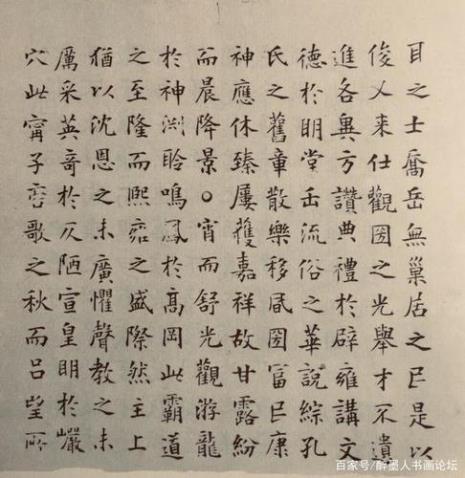 耳之士喬岳無巢居之民是以
俊乂来仕觀圀之光舉才不遺
進各異方讚典禮於辟雍講文
德於明堂𠙺流俗之華說綜孔
氏之舊章散樂移風圀富民康
神應休臻屢獲嘉祥故甘露紛
而晨降景〇宵而舒光觀游龍
於神渊聆鳴鳳於髙岡此霸道
之至隆而熙雍之盛際然主上
猶以沈恩之未廣懼聲教之未
厲采英奇於仄陋宣皇明於巖
穴此甯子商歌之秋而呂望所
百家号/醉墨人书画论坛